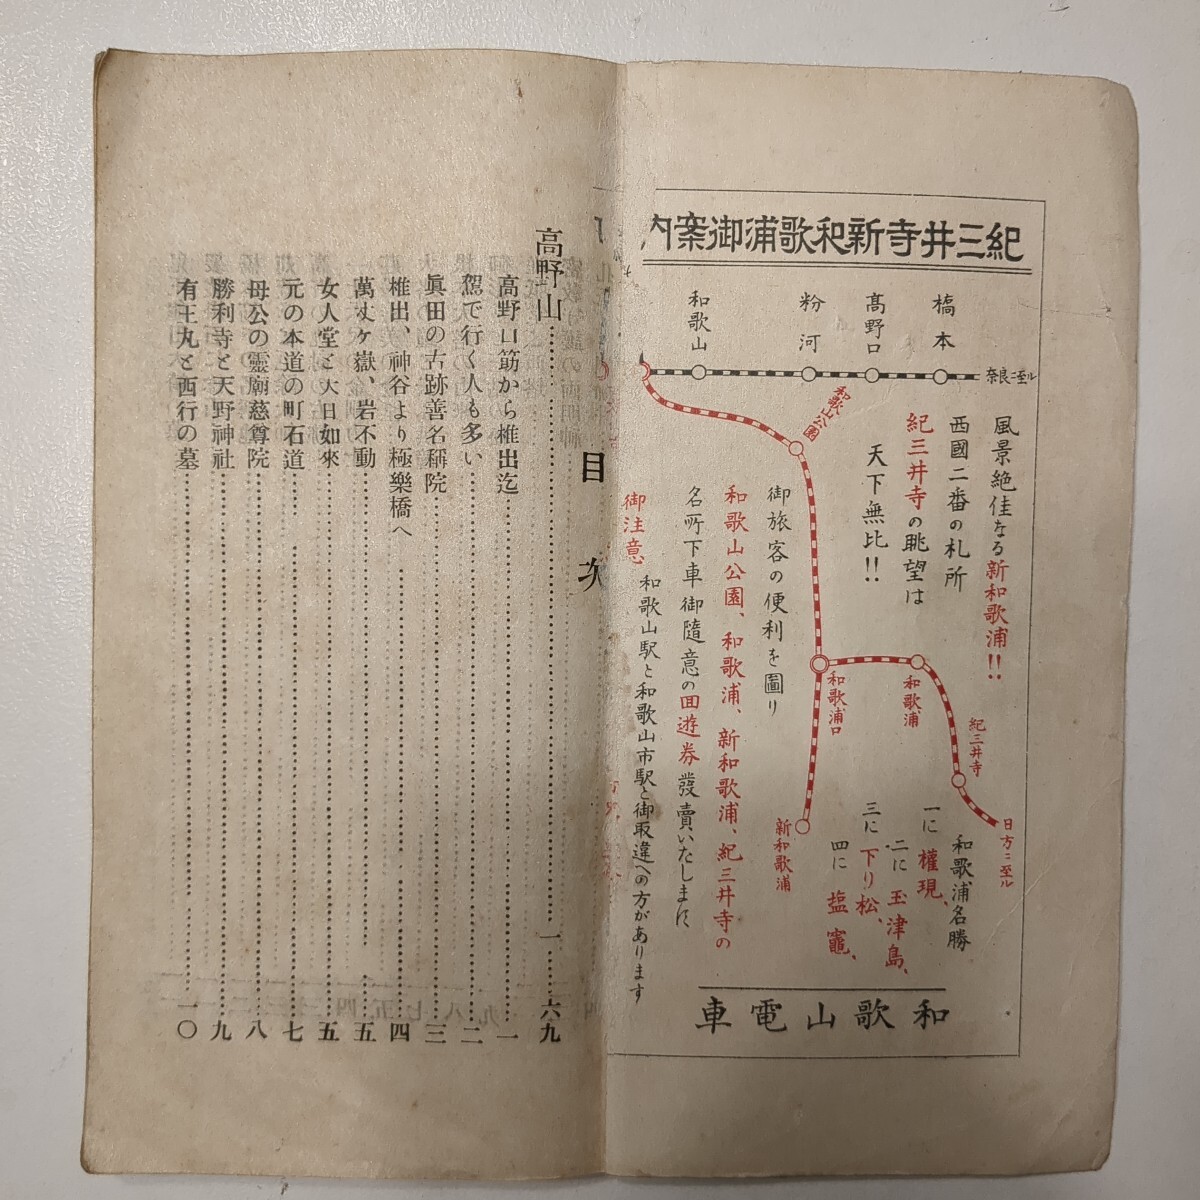 紀三井寺新和歌浦御案内
橋本
高野口
粉河
和歌山
奈良ニ至ル
和歌山公園
和歌浦口
和歌浦
紀三井寺
日方ニ至ル
新和歌浦
風景絶佳なる新和歌浦!!
西國二番の札所
紀三井寺の眺望は
天下無比!!
御旅客の便利を圖り
和歌山公園、和歌浦、新和歌浦、紀三井寺の
名所下車御隨意の回遊券發賣いたします
御注意
和歌山駅と和歌山市駅と御取違への方があります
和歌浦名勝
一に權現、
二に玉津島、
三に下り松、
四に塩竈、
和歌山電車
目次
高野山……一—六九
高野口筋から椎出迄……一
駕で行く人も多い……二
眞田の古跡善名稱院……三
椎出、神谷より極樂橋へ……四
萬丈ヶ嶽、岩不動……五
女人堂と大日如來……五
元の本道の町石道……七
母公の靈廟慈尊院……八
勝利寺と天野神社……九
有王丸と西行の墓……一〇